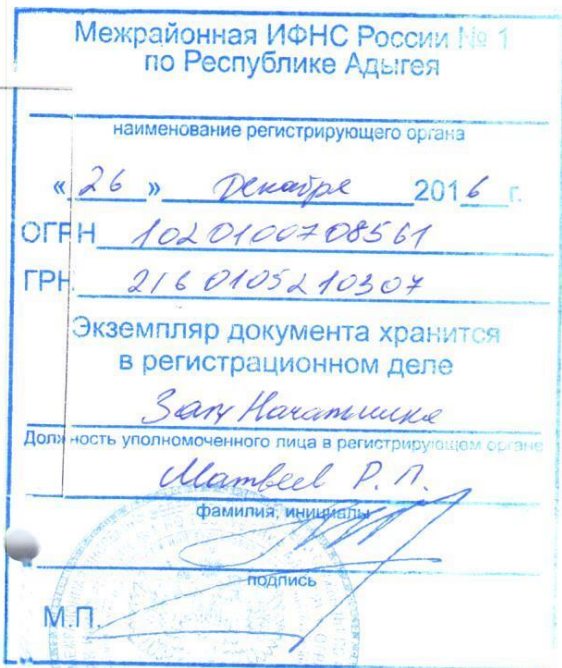 Межрайонная ИФНС России № 1
по Республике Адыгея
наименование регистрирующего органа
« 26 » декабря 2016 г.
ОГРН 1020100708561
ГРН 2160105210307
Экземпляр документа хранится
в регистрационном деле
Зам Начальника
Должность уполномоченного лица в регистрирующем органе
Матвеев Р. П.
фамилия, инициалы
подпись
М.П.